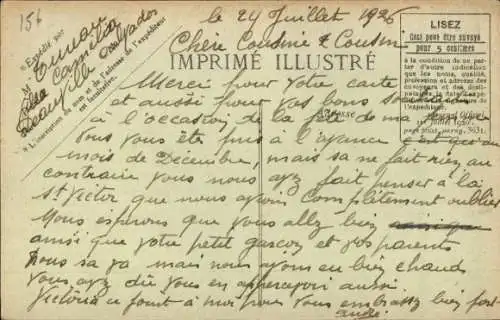 156
« Expédié par
M
Villa Camélia
Deauville Calvados
« L'inscription du nom et de l'adresse de l'expéditeur
est facultative.
IMPRIMÉ ILLUSTRÉ
LISEZ
Ceci peut être envoyé
pour 5 centimes
à la condition de ne porter d'autre indication que les noms, qualité, profession et adresse des envoyeurs et des destinataires, la date
le 24 Juillet 1926
Chère Cousine & Cousin
Merci pour votre carte
et aussi pour vos bons
à l'occasion de la fête de ma
Vous vous êtes pris à l'avance c'est qu'au
mois de Décembre, mais sa ne fait rien au
contraire vous nous avez fait penser à la
St Victor que nous avions complètement oublier
Nous espérons que vous allez bien
ainsi que votre petit garçon et vos parents
Nous sa va mais nous avons eu bien chaud
vous avez dû vous en apercevoir aussi
Victoria se joint à moi pour vous embrassez bien fort